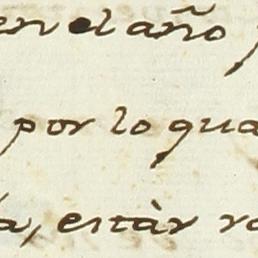 en el año
por lo qua
a, estàr